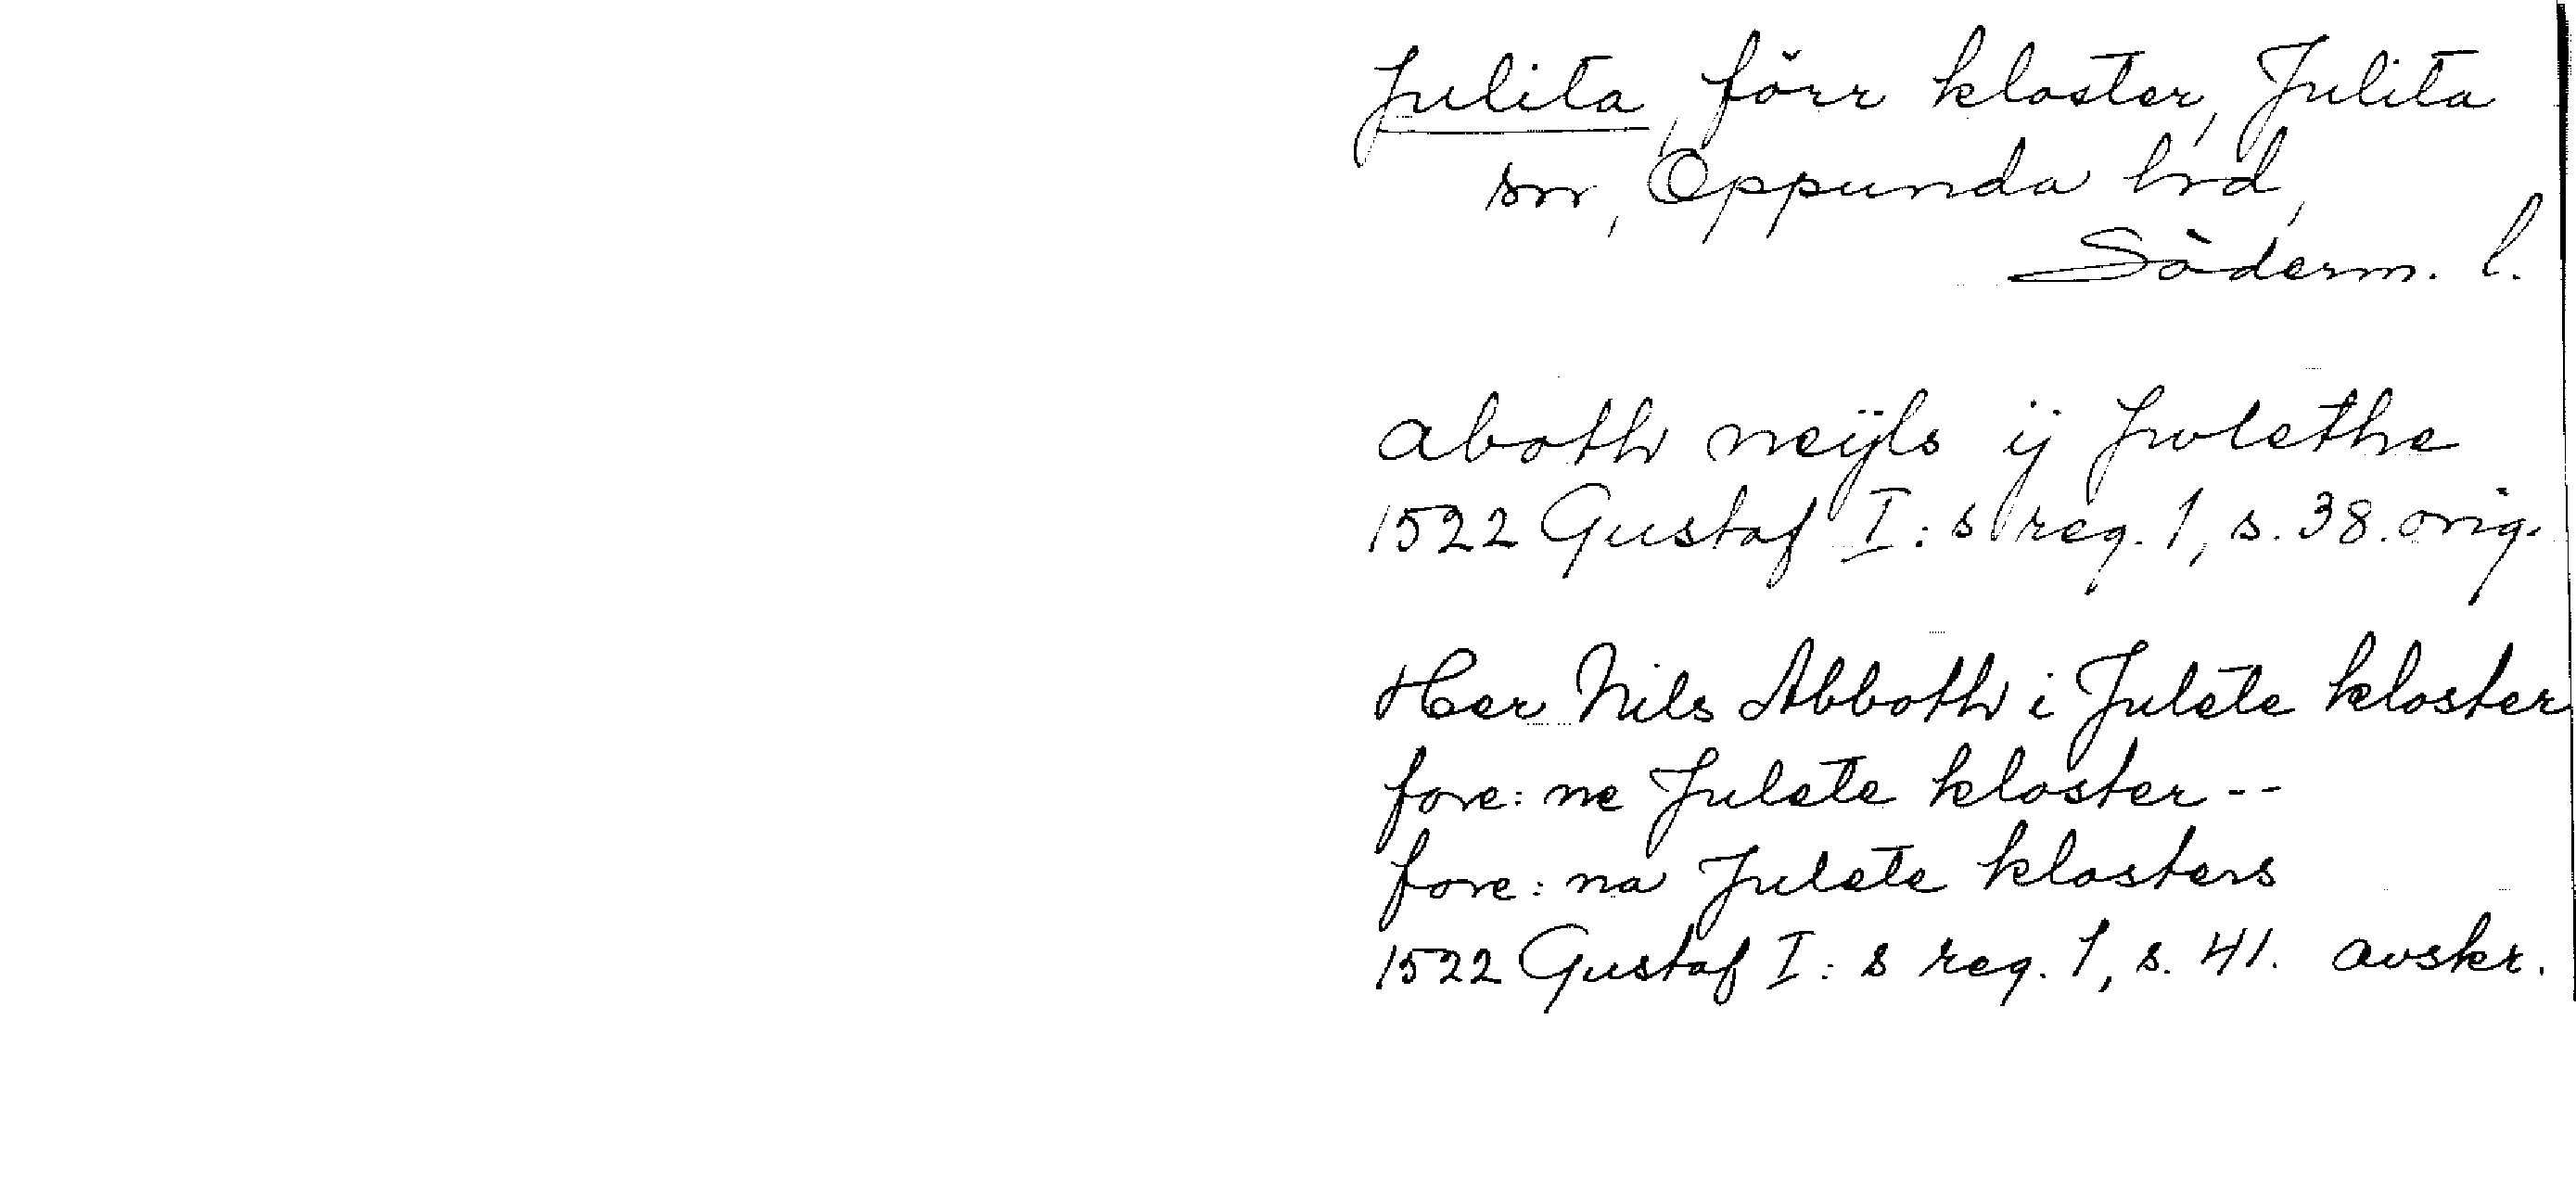 Julita, förr kloster, Julita
sn, Oppunda hd,
Söderm. l.
aboth neÿls ÿ Jwlethe
1522 Gustaf I:s reg. 1, s. 38. orig.
Her Nils Abboth i Julete kloster
fore:ne Julete kloster--
fore:na Julete klosters
1522 Gustaf I:s reg. 1, s. 41. avskr.